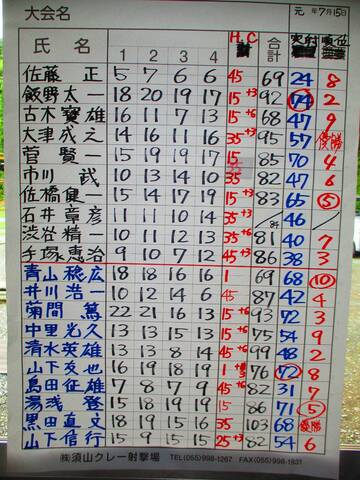 大会名 元年7月15日
氏名 1 2 3 4 H.C 合計 実射 順位
佐藤 正 5 7 6 6 45 69 24 8
飯野太一 18 20 19 17 15+3 92 74 2
古木寶雄 16 11 7 13 15+6 68 47 9
大津成之 14 16 11 16 35+3 95 57 優勝
菅 賢一 15 19 19 17 15 85 70 4
市川 武 10 13 14 10 35 82 47 6
佐橋健一 15 14 17 19 15+3 83 65 5
石井章彦 11 11 10 14 /84 46
渋谷精一 10 11 12 13 35+6 81 40 7
手塚恵治 9 10 7 12 45+3 86 38 3
青山穂広 18 18 16 16 1 69 68 10
井川浩一 10 12 14 6 45 87 42 4
菊間 篤 22 21 16 13 15+6 93 72 3
中里光久 13 13 15 13 15+6 75 54 9
清水英雄 13 13 8 14 45+6 99 48 2
山下友也 16 19 18 19 1+3 76 72 8
島田征雄 7 8 7 9 45+6 82 31 7
湯浅 登 15 18 19 19 15 86 71 5
黒田直文 15 18 19 16 35 103 68 優勝
山下信行 15 9 15 15 25+3 82 54 6
㈱須山クレー射撃場 TEL(055)998-1267 FAX(055)998-1831